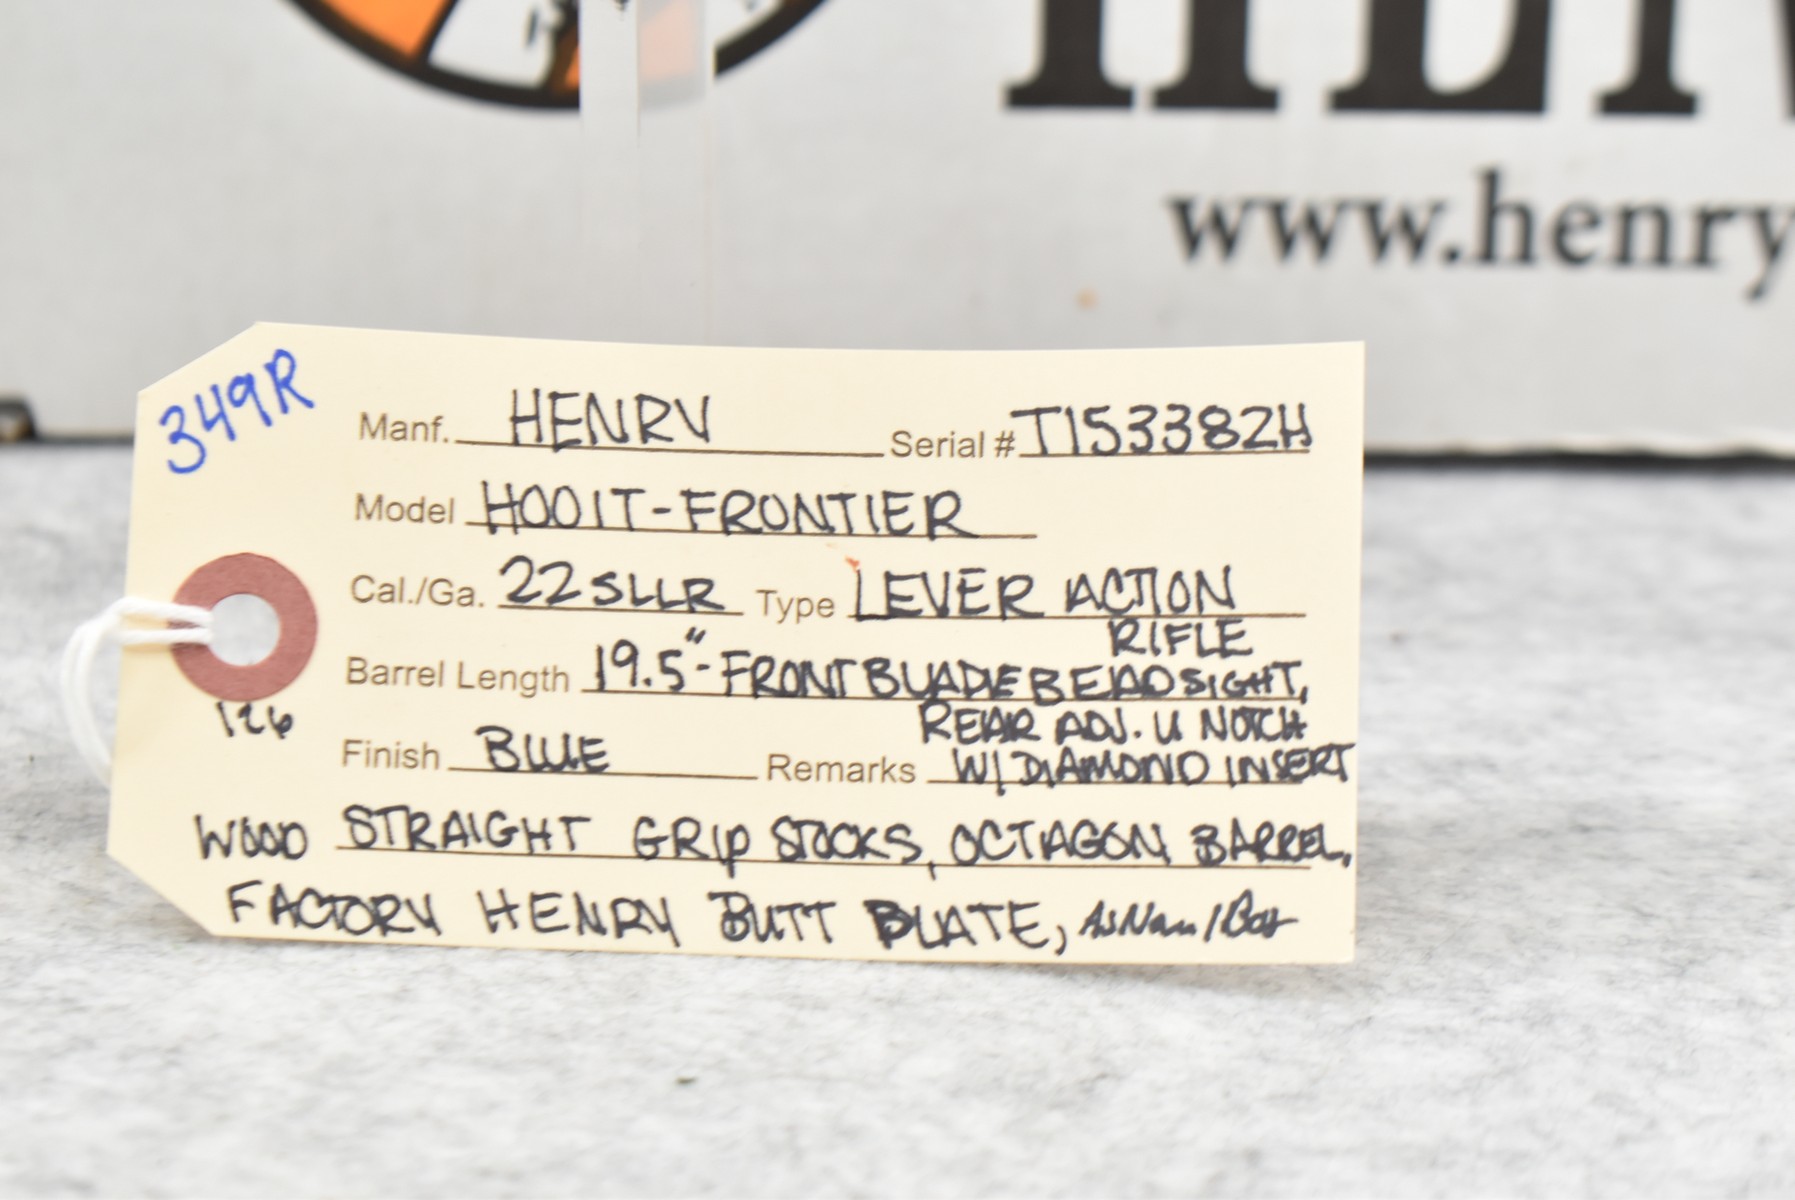 www.henry
349R
Manf. HENRY Serial # T153382H
Model H001T-FRONTIER
Cal./Ga. 22SLLR Type LEVER ACTION
RIFLE
Barrel Length 19.5"-FRONT BLADE BEAD SIGHT,
REAR ADJ. U NOTCH
126
Finish BLUE Remarks W/ DIAMOND INSERT
WOOD STRAIGHT GRIP STOCKS, OCTAGON BARREL,
FACTORY HENRY BUTT PLATE, As New/Box